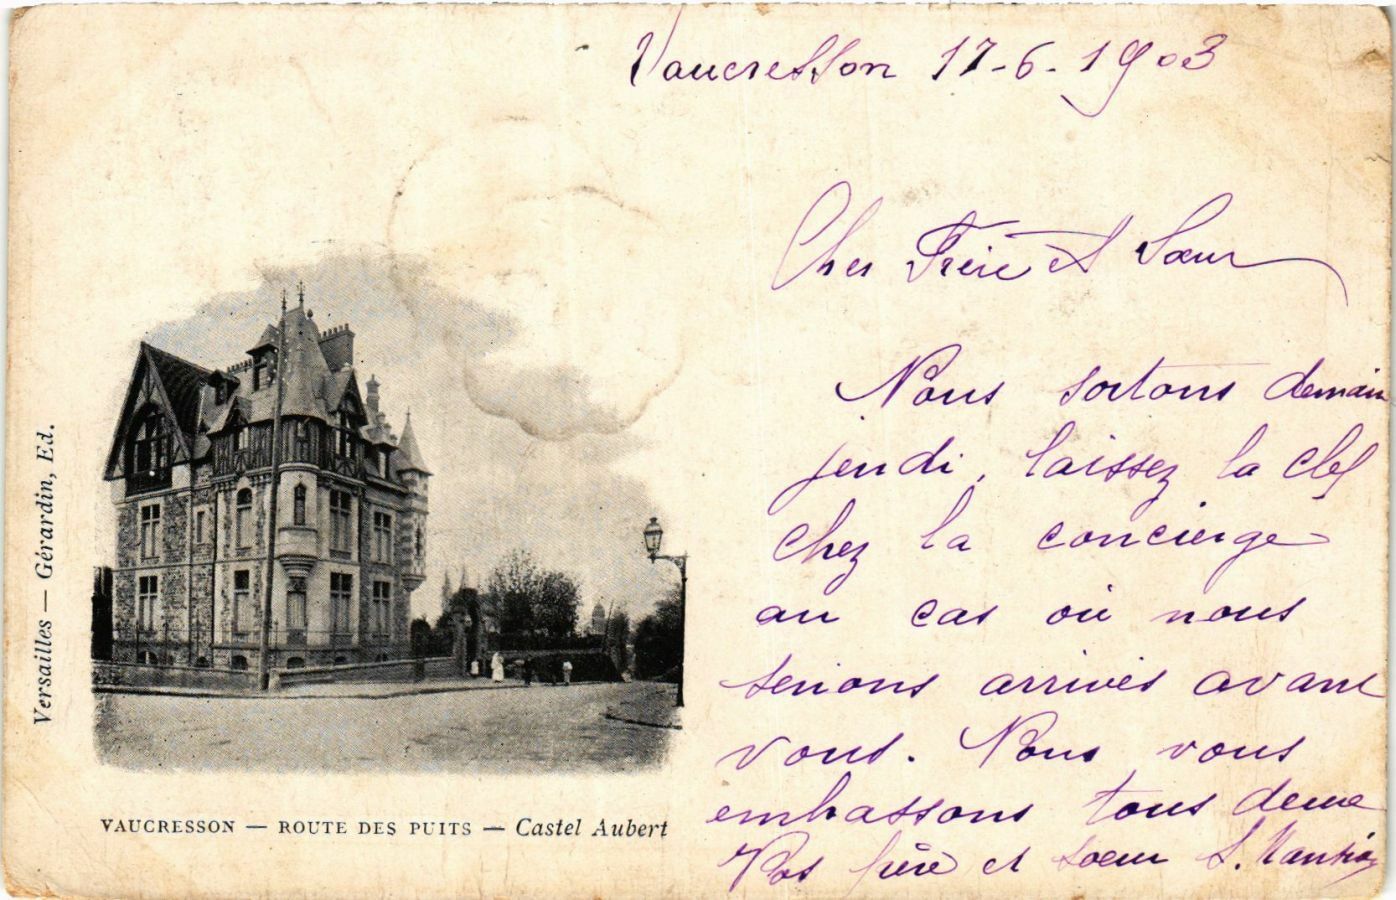 Vaucresson 17-6-1903
Cher Frère et Sœur
Nous sortons demain
jeudi, laissez la clef
chez la concierge
au cas où nous
serions arrivés avant
vous. Nous vous
embrassons tous deux
Vos frère et sœur S.
Versailles — Gérardin, Ed.
VAUCRESSON — ROUTE DES PUITS — Castel Aubert